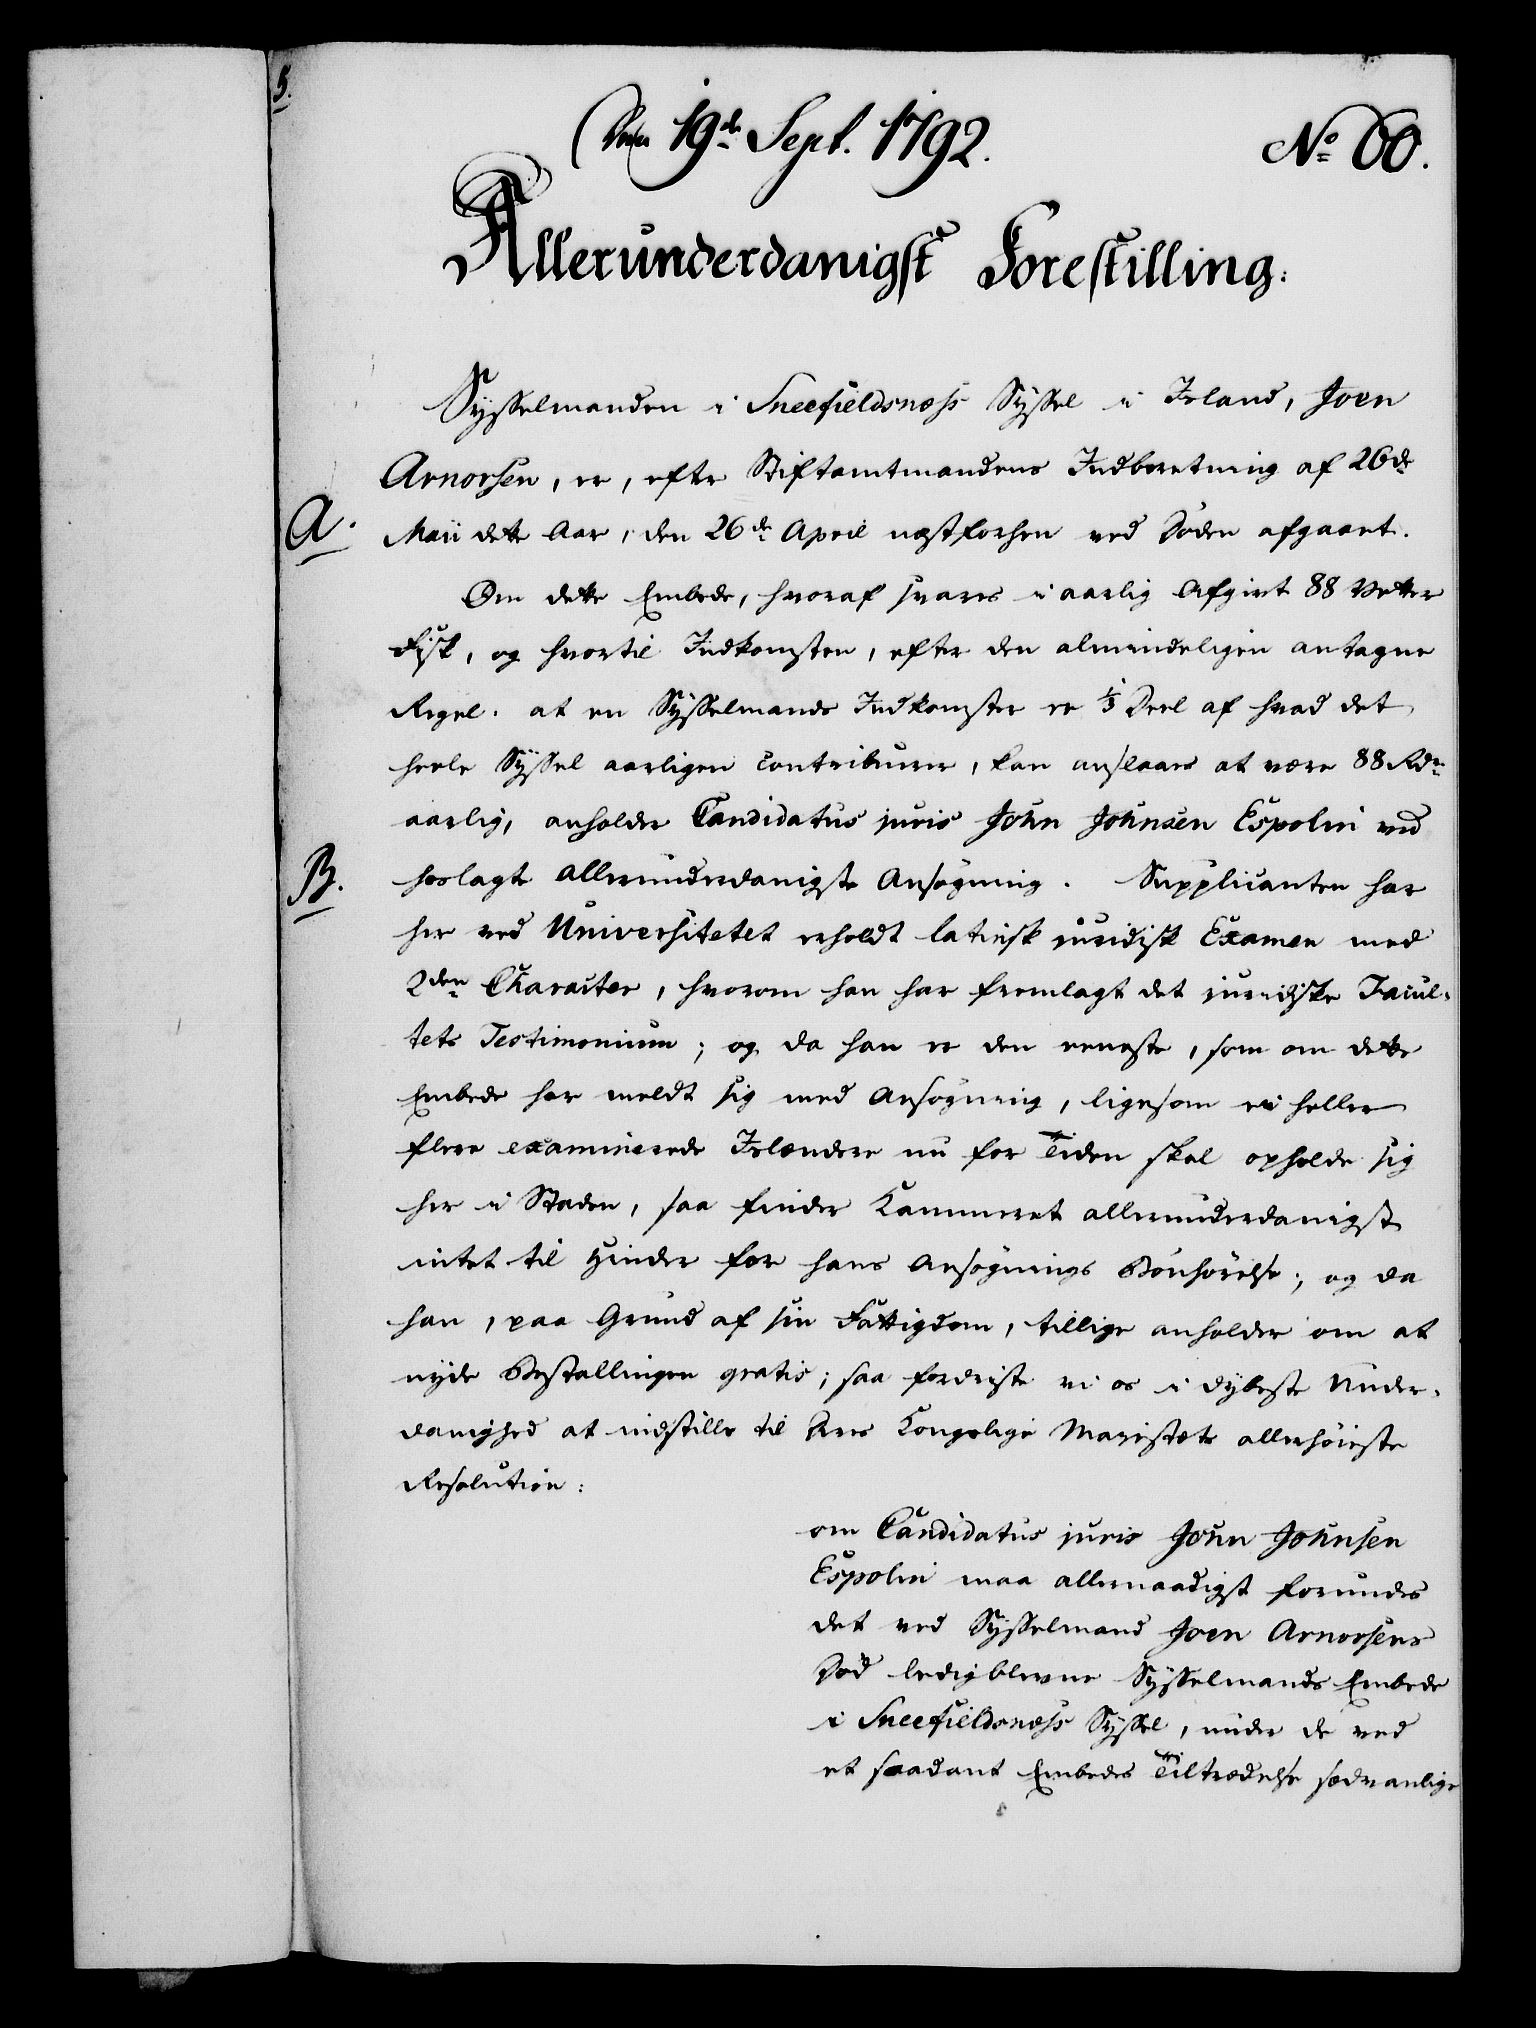 5.
Den 19de Sept. 1792.
No 60.
Allerunderdanigst Forestilling:
Sysselmanden i Sneefieldsness Syssel i Island, Joen
Arnorsen, er, efter Stiftamtmandens Indberetning af 26de
A.
Maii dette Aar, den 26de April næstforhen ved Døden afgaaet.
Om dette Embede, hvoraf svares i aarlig Afgivt 88 Vetter
Fisk, og hvortil Indkomsten, efter den almindeligen antagne
Regel. at en Sysselmands Indkomster er 1/3 Deel af hvad det
heele Syssel aarligen contribuerer, kan anslaaes at være 88 Rdr
aarlig, anholder Candidatus juris John Johnsen Espolin ved
B.
hoslagte allerunderdanigste Ansøgning. Supplicanten har
her ved Universitetet erholdt latinsk juridisk Examen med
2den Character, hvorom han har fremlagt det juridiske Facul-
tets Testimonium; og da han er den eeneste, som om dette
Embede har meldt sig med Ansøgning, ligesom ei heller
flere examinerede Islændere nu for Tiden skal opholde sig
her i Staden, saa finder Kammeret allerunderdanigst
intet til Hinder for hans Ansøgnings Bønhørelse; og da
han, paa Grund af sin Fattigdom, tillige anholder om at
nyde Bestallingen gratis; saa fordriste vi os i dybeste Under-
danighed at indstille til Deres Kongelige Majestæts allerhøieste
Resolution:
om Candidatus juris John Johnsen
Espolin maa allernaadigst forundes
det ved Sysselmand Joen Arnorsens
Død ledigblevne Sysselmands Embede
i Sneefieldsness Syssel, under de ved
et saadant Embedes Tiltrædelse sædvanlige